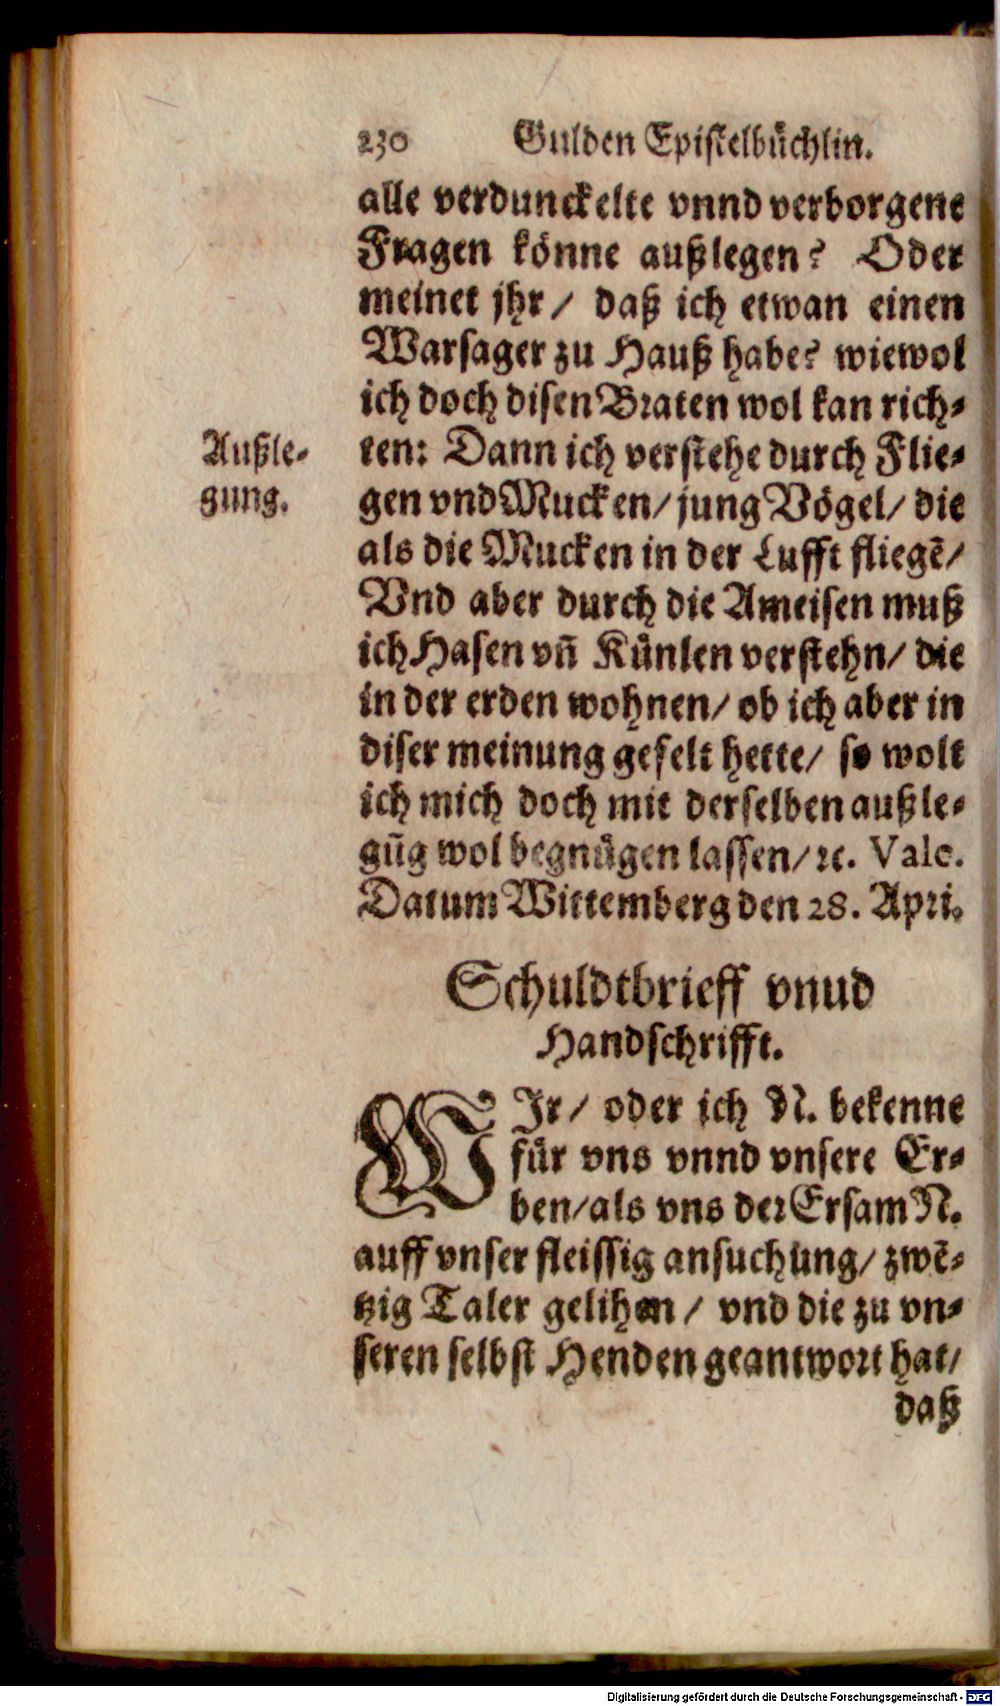 230 Gulden Epistelbüchlin.
alle verdunckelte vnnd verborgene
Fragen könne außlegen? Oder
meinet jhr / daß ich etwan einen
Warsager zu Hauß habe? wiewol
ich doch disen Braten wol kan rich-
Außle-
gung.
ten: Dann ich verstehe durch Flie-
gen vnd Mucken / jung Vögel / die
als die Mucken in der Lufft fliegẽ /
Vnd aber durch die Ameisen muß
ich Hasen vñ Künlen verstehn / die
in der erden wohnen / ob ich aber in
diser meinung gefelt hette / so wolt
ich mich doch mit derselben außle-
gũg wol begnügen lassen / ꝛc. Vale.
Datum Wittemberg den 28. Apri.
Schuldtbrieff vnud
Handschrifft.
WIr / oder ich N. bekenne
für vns vnnd vnsere Er-
ben / als vns der Ersam N.
auff vnser fleissig ansuchung / zwẽ-
tzig Taler gelihen / vnd die zu vn-
seren selbst Henden geantwort hat /
daß
Digitalisierung gefördert durch die Deutsche Forschungsgemeinschaft - DFG